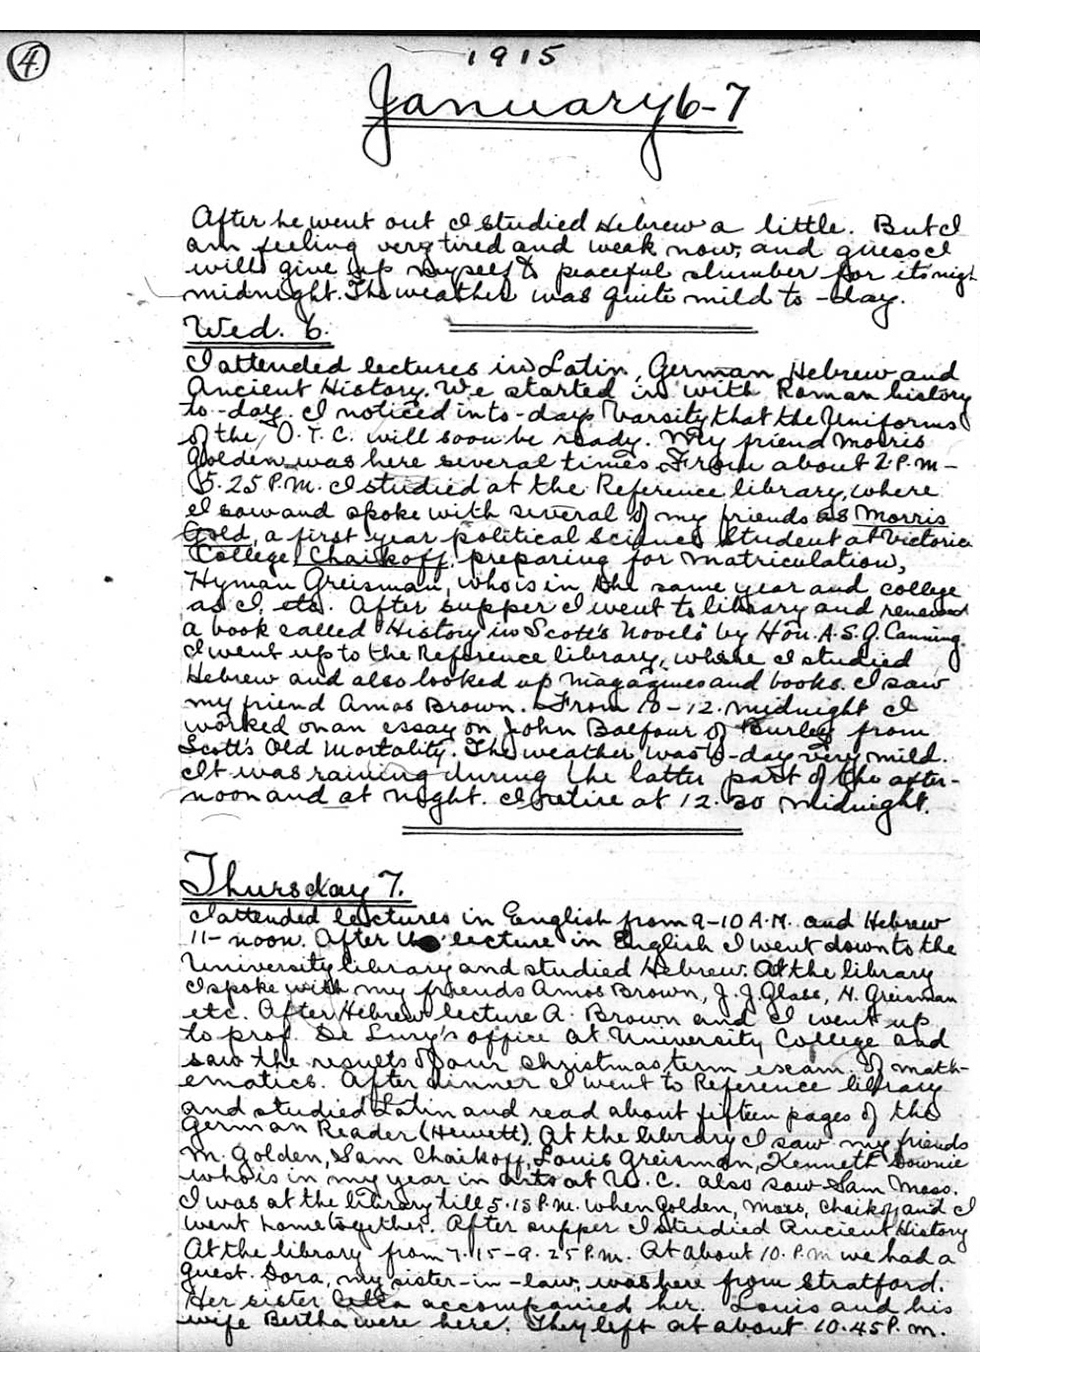 4.
1915
January 6-7
After he went out I studied Hebrew a little. But I
am feeling very tired and weak now, and guess I
will give up myself to peaceful slumber for its nigh
midnight. The weather was quite mild to-day.
Wed. 6.
I attended lectures in Latin, German, Hebrew and
Ancient History. We started in with Roman history
to-day. I noticed in to-days Varsity that the Uniforms
of the O.T.C. will soon be ready. My friend Morris
Golden was here several times. From about 2 P.M-
5.25 P.M. I studied at the Reference library, where
I saw and spoke with several of my friends as Morris
Gold, a first year political science student at Victoria
College, Chaikoff, preparing for matriculation,
Hyman Greisman, who is in the same year and college
as I, etc. After supper I went to library and renewed
a book called "History in Scott's Novels" by Hon. A.S.G. Canning.
I went up to the Reference library, where I studied
Hebrew and also looked up magazines and books. I saw
my friend Amos Brown. From 10-12. midnight I
worked on an essay on John Balfour of Burley from
Scott's Old Mortality. The weather was to-day very mild.
It was raining during the latter part of the after-
noon and at night. I retire at 12.20 midnight.
Thursday 7.
I attended lectures in English from 9-10 A.M. and Hebrew
11-noon. After lecture in English I went down to the
University library and studied Hebrew. At the library
I spoke with my friends Amos Brown, J.J. Glass, H. Greisman
etc. After Hebrew lecture A. Brown and I went up
to prof. De Lury's office at University College and
saw the results of our Christmas term exam. of math-
ematics. After dinner I went to Reference library
and studied Latin and read about fifteen pages of the
German Reader (Hewett). At the library I saw my friends
M. Golden, Sam Chaikoff, Louis Greisman, Kenneth Downie
who is in my year in Arts at U.C. also saw Sam Moss.
I was at the library till 5.15 P.M. when Golden, Moss, Chaikoff and I
went home together. After supper I studied Ancient History
At the library from 7.15-9.25 P.M. At about 10. P.M we had a
guest. Dora, my sister-in-law, was here from Stratford.
Her sister accompanied her. Louis and his
wife Bertha were here. They left at about 10.45 P.M.